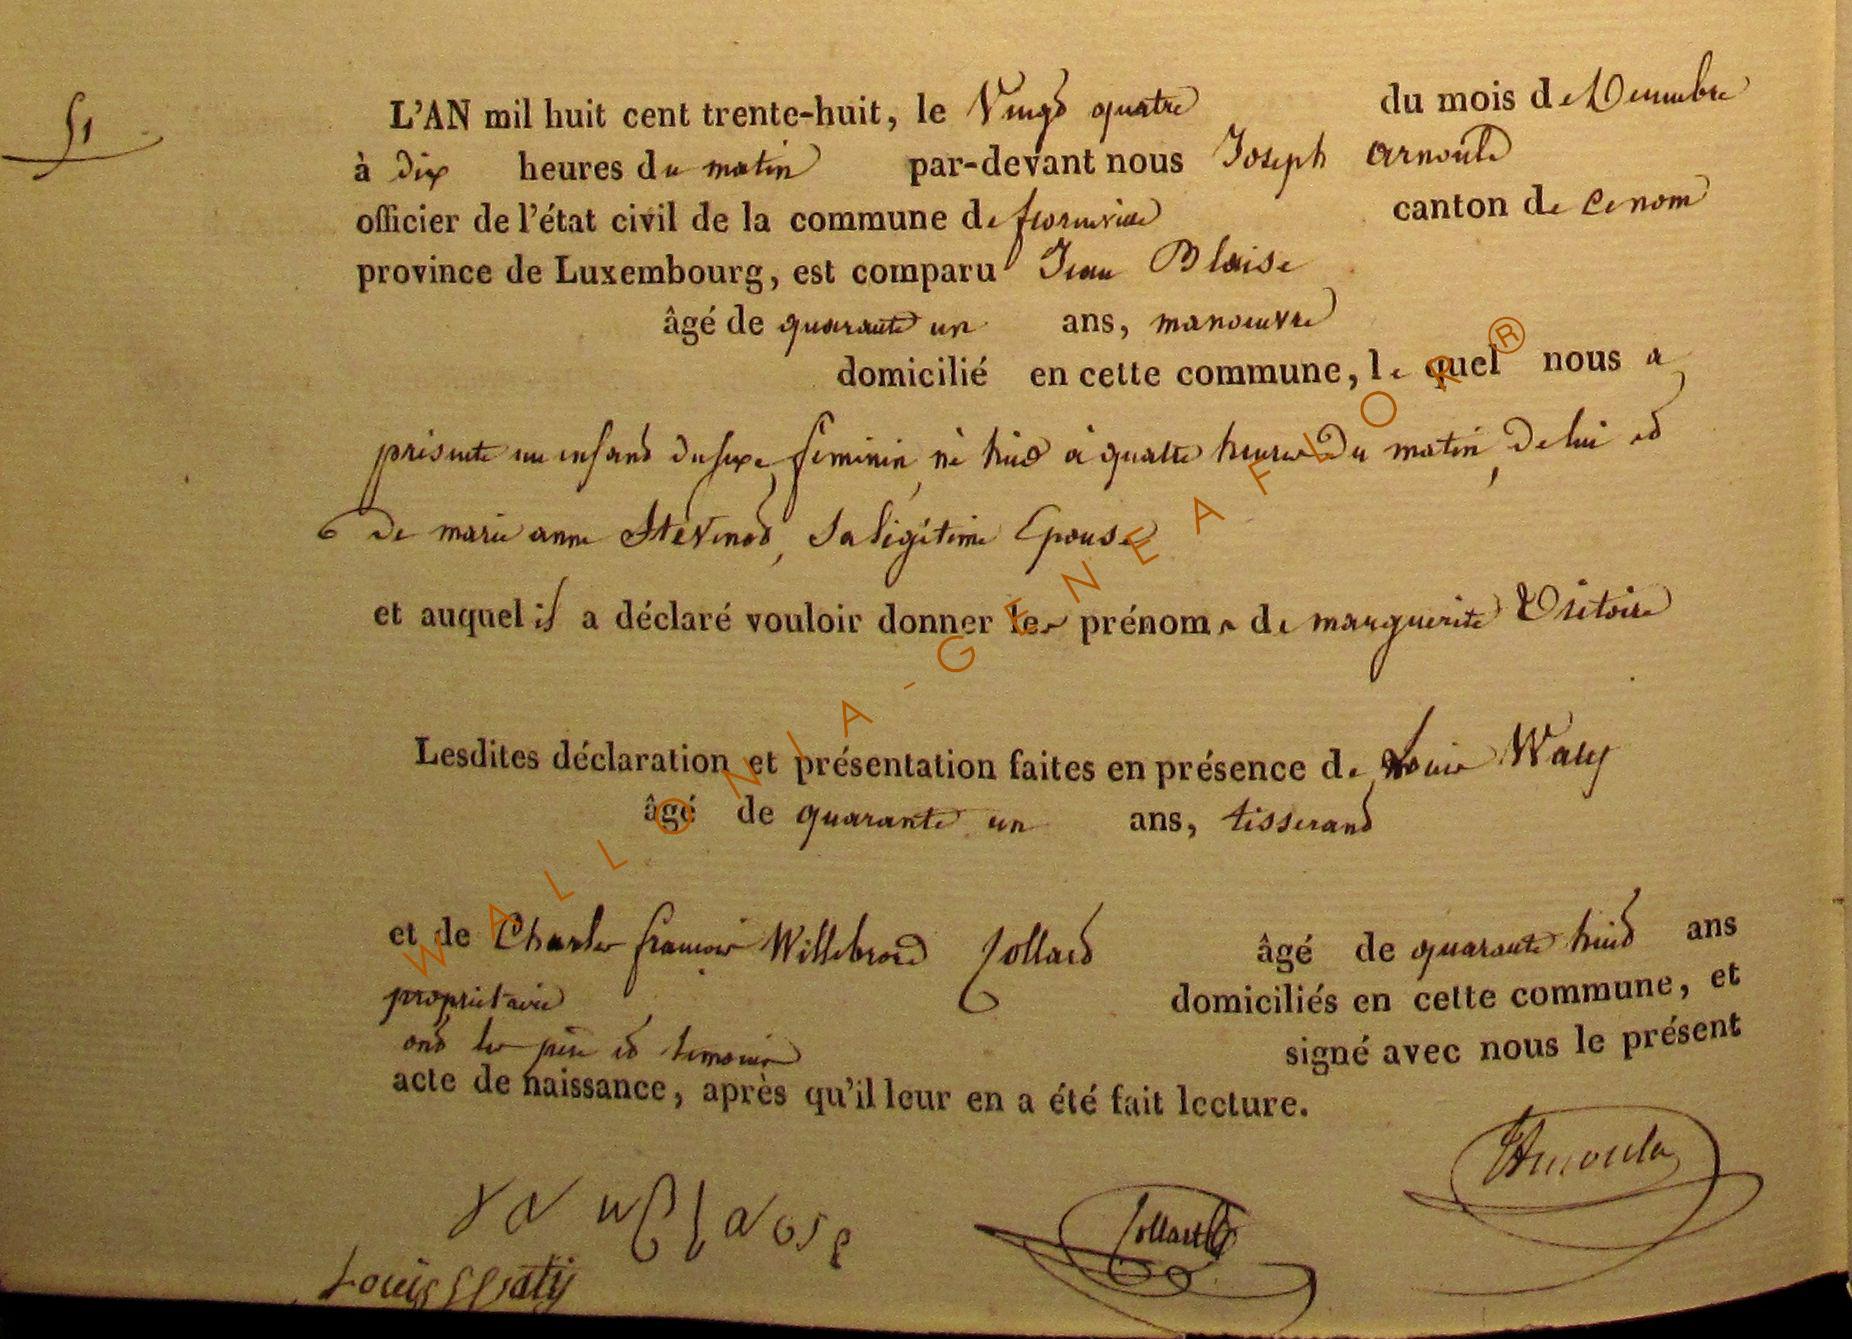 51
L'AN mil huit cent trente-huit, le Vingt quatre du mois de Decembre
à dix heures du matin par-devant nous Joseph arnould
officier de l'état civil de la commune de florenville canton de
province de Luxembourg, est comparu Jean Blaise
âgé de quarante un ans, manoeuvre
domicilié en cette commune, le quel nous a
présenté un enfant du sexe féminin, né hier à quatre heures du matin, de lui et
de marie anne Stévenot, Sa légitime Epouse
et auquel il a déclaré vouloir donner les prénoms de marguerite Victoire
Lesdites déclaration et présentation faites en présence de Louis Waty
âgé de quarante un ans, tisserand
et de Charles françois Willebrord Collard âgé de quarante huit ans
propriétaire domiciliés en cette commune, et
ont les père et témoins signé avec nous le présent
acte de naissance, après qu'il leur en a été fait lecture.
JArnould
Collard
Louis Waty
WALLONIA-GENEAFLOR®